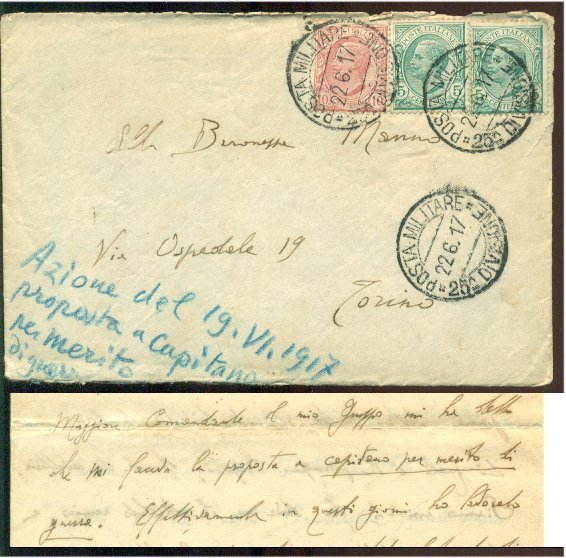 POSTE ITALIANE
POSTE ITALIANE
POSTA MILITARE
25ª DIVISIONE
22.6.17
POSTA MILITARE
25ª DIVISIONE
22.6.17
10
10
5
5
5
Alla Baronessa Manno
POSTA MILITARE
25ª DIVISIONE
22.6.17
Via Ospedale 19
Torino
Azione del 19.VI.1917
proposta a Capitano
per merito
di guerra
Maggiore Comandante il mio Gruppo mi ha detto
che mi faceva la proposta a capitano per merito di
guerra. Effettivamente in questi giorni ho lavorato